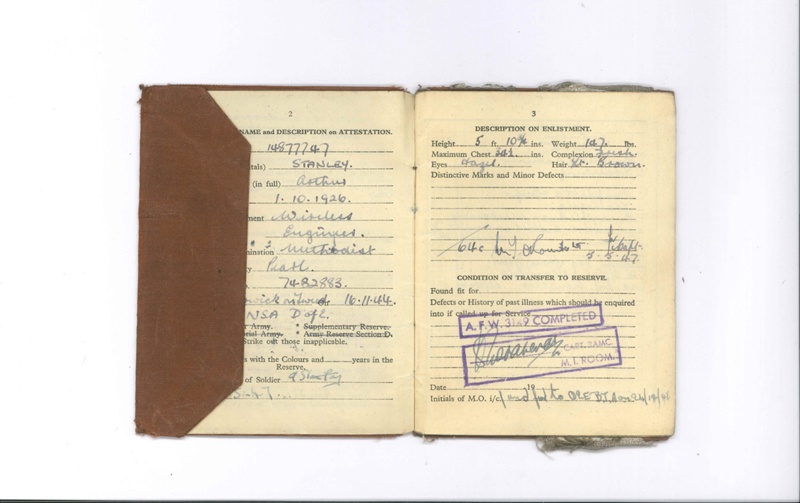 2
NAME and DESCRIPTION on ATTESTATION.
14877747
STANLEY.
(in full) Arthur
1.10.1926.
Wireless
Engineer.
Methodist
7482883.
16.11.44.
NSA
Army. * Supplementary Reserve.
Army. * Army Reserve Section D.
Strike out those inapplicable.
with the Colours and years in the
Reserve.
of Soldier A Stanley
3
DESCRIPTION ON ENLISTMENT.
Height 5 ft. 10¾ ins. Weight 147 lbs.
Maximum Chest ins. Complexion Fresh.
Eyes Hazel. Hair Lt. Brown.
Distinctive Marks and Minor Defects
5.5.47.
CONDITION ON TRANSFER TO RESERVE.
Found fit for
Defects or History of past illness which should be enquired
into if called up for Service
A.F.W. 3149 COMPLETED
CAPT. RAMC
M.I. ROOM.
Date 19
Initials of M.O. i/c